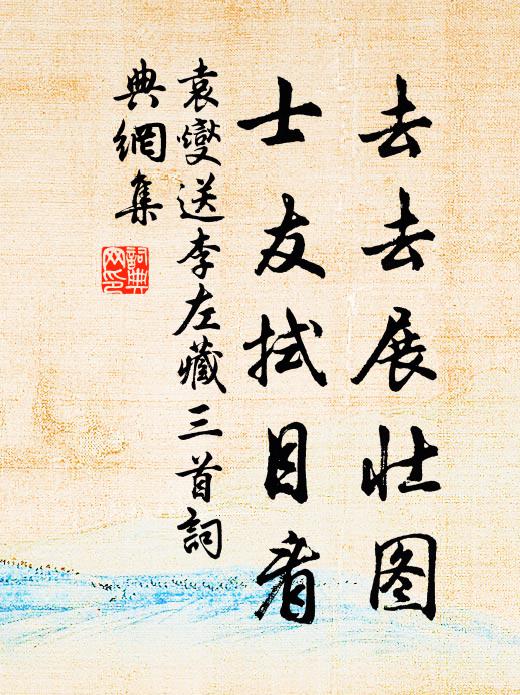 去去展壮图
士友拭目看
袁燮送李左藏三首詞
典網集
詞典网印